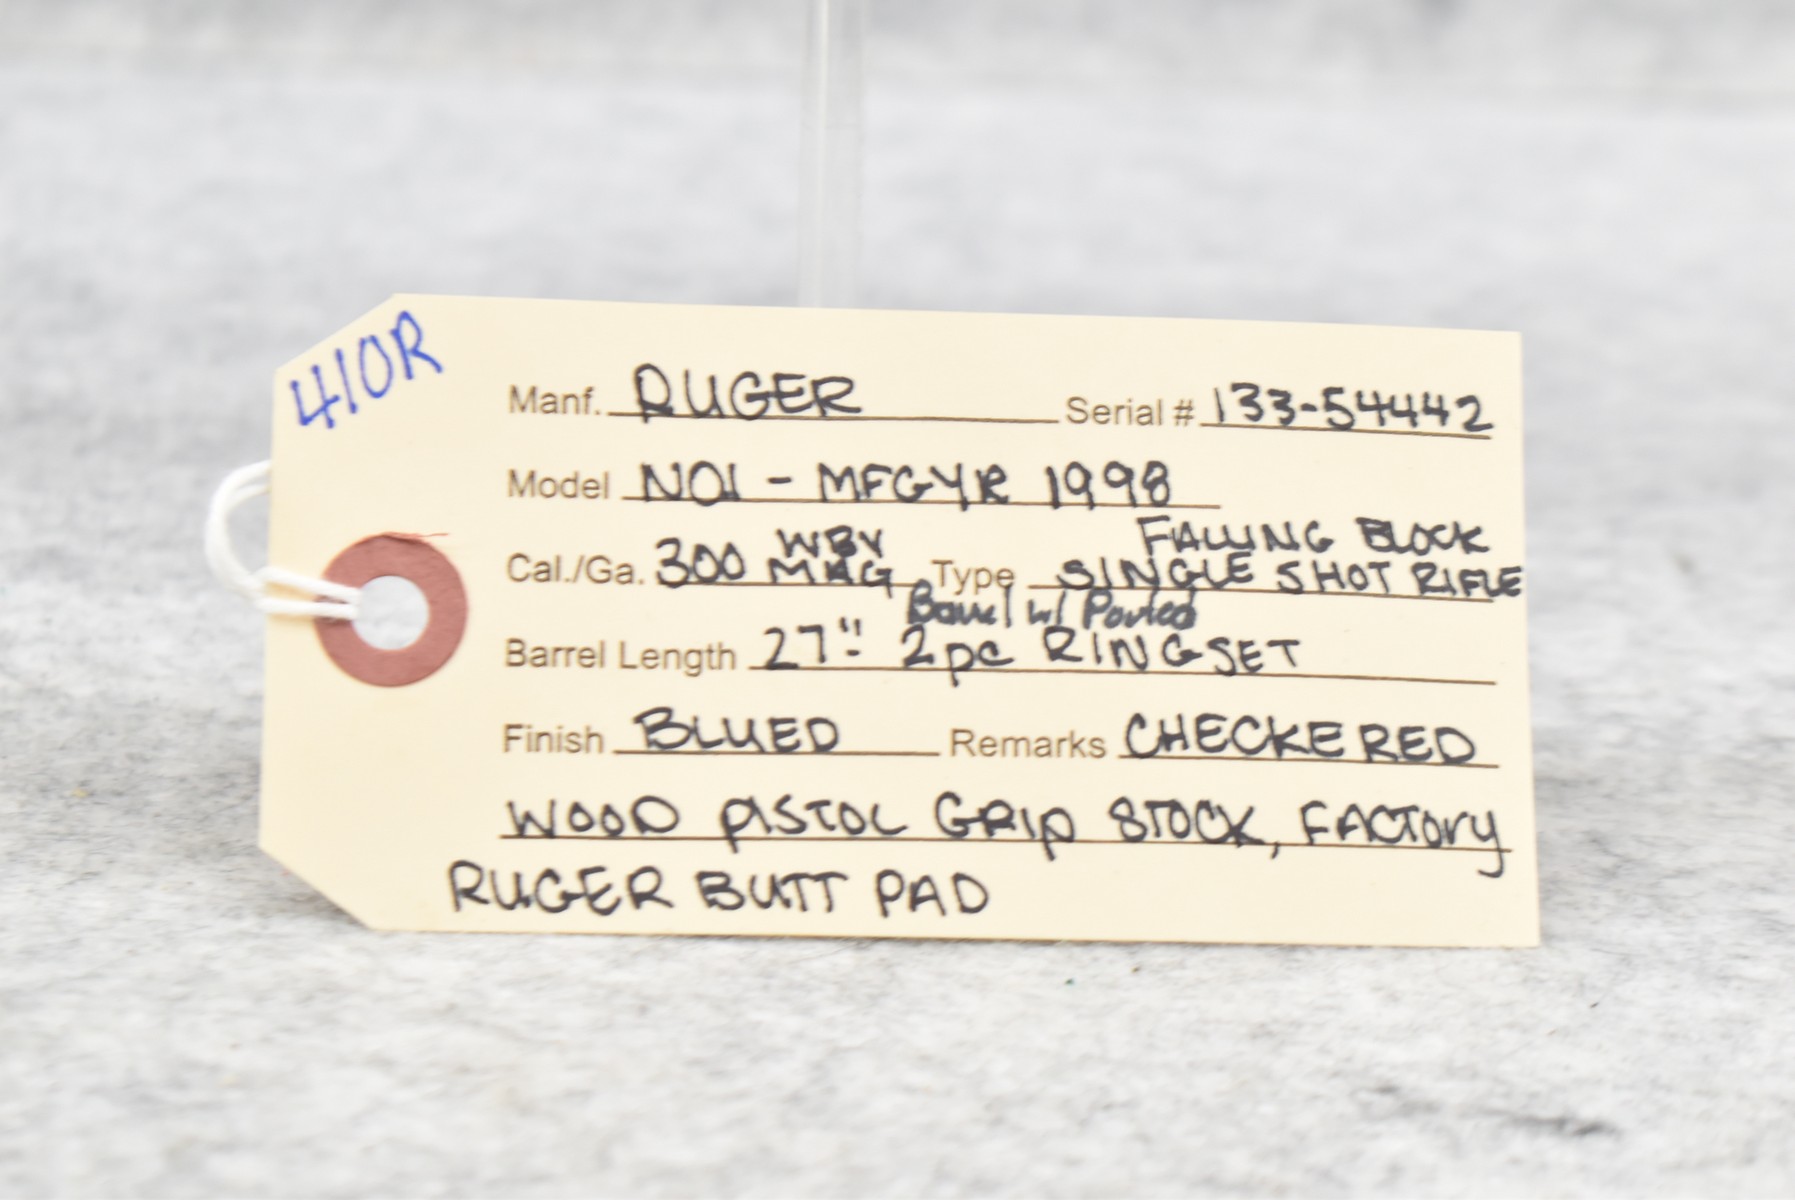 410R
Manf. RUGER Serial # 133-54442
Model NO1 - MFGYR 1998
Cal./Ga. 300 WBY MAG Type FALLING BLOCK SINGLE SHOT RIFLE
Barrel w/ Ported
Barrel Length 27" 2pc RING SET
Finish BLUED Remarks CHECKERED
WOOD PISTOL GRIP STOCK, FACTORY
RUGER BUTT PAD